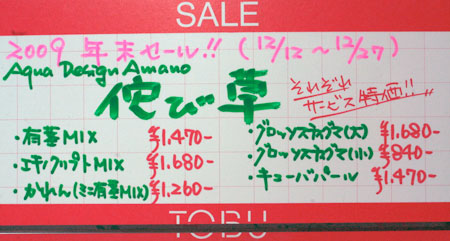 SALE
2009 年末セール!! (12/12～12/27)
Aqua Design Amano
侘び草
それぞれ
サービス特価!!
・有茎MIX ¥1.470-
・エキノ,クリプトMIX ¥1.680-
・かれん(ミニ有茎MIX) ¥1.260-
・グロッソスティグマ(大) ¥1.680-
・グロッソスティグマ(小) ¥840-
・キューバパール ¥1.470-
TOBU